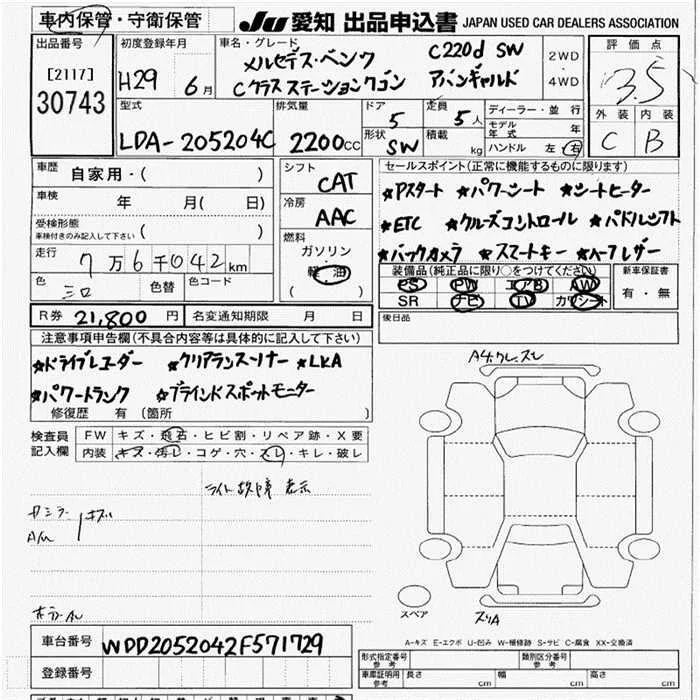 車内保管・守衛保管
JU 愛知 出品申込書 JAPAN USED CAR DEALERS ASSOCIATION
出品番号
[2117]
30743
初度登録年月
H29 6月
車名・グレード
メルセデス・ベンツ C220d SW
Cクラスステーションワゴン アバンギャルド
2WD
4WD
評価点
3.5
外装 内装
C B
型式
LDA-205204C
排気量
2200CC
ドア
5
形状
SW
定員
5人
積載
kg
ディーラー・並行
モデル年式 年
ハンドル 左 右
車歴
自家用・( )
車検
年 月( 日)
受検形態
車検付きのみ記入して下さい ( )
走行
7万6千042km
色
シロ
色替
色コード
シフト
CAT
冷房
AAC
燃料
ガソリン
軽油
( )
セールスポイント(正常に機能するものに限ります)
★Pスタート ★パワーシート ★シートヒーター
★ETC ★クルーズコントロール ★パドルシフト
★バックカメラ ★スマートキー ★ハーフレザー
装備品(純正品に限り○をつけてください)
PS PW エアB AW
SR ナビ TV カワシート
新車保証書
有・無
後日品
R券 21,800円
名変通知期限 月 日
注意事項申告欄(不具合内容等は具体的に記入して下さい)
★ドライブレコーダー ★クリアランスソナー ★LKA
★パワートランク ★ブラインドスポットモニター
修復歴 有(箇所 )
検査員
記入欄
FW キズ・飛石・ヒビ割・リペア跡・X要
内装 キズ・汚レ・コゲ・穴・スレ・キレ・破レ
ライト故障表示
キズ
スペア
スリA
A-キズ E-エクボ U-凹み W-補修跡 S-サビ C-腐食 XX-交換済
車台番号 WDD2052042F571729
登録番号
形式指定番号
参考
類別区分番号
参考
車庫証明用
参考
長さ cm
幅 cm
高さ cm